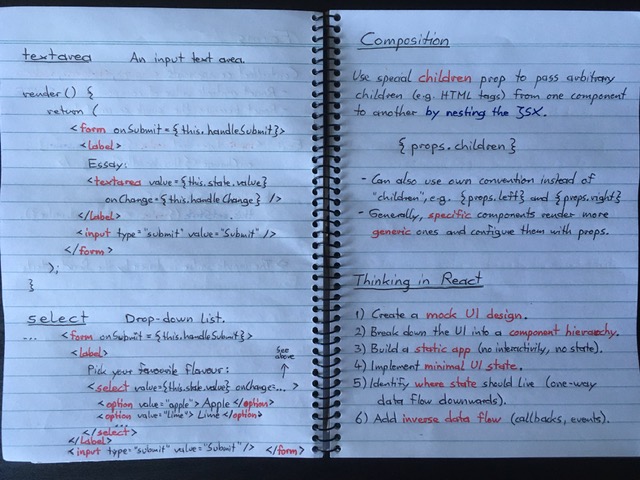 textarea An input text area.
render() {
return (
<form onSubmit={this.handleSubmit}>
<label>
Essay:
<textarea value={this.state.value}
onChange={this.handleChange} />
</label>
<input type="submit" value="Submit" />
</form>
);
}
select Drop-down List.
... <form onSubmit={this.handleSubmit}>
<label>
Pick your favourite flavour:
See above ↑
<select value={this.state.value} onChange=... >
<option value="apple"> Apple </option>
<option value="lime"> Lime </option>
...
</select>
</label>
<input type="submit" value="Submit" /> </form>
Composition
Use special children prop to pass arbitrary
children (e.g. HTML tags) from one component
to another by nesting the JSX.
{ props.children }
- Can also use own convention instead of
"children", e.g. {props.left} and {props.right}
- Generally, specific components render more
generic ones and configure them with props.
Thinking in React
1) Create a mock UI design.
2) Break down the UI into a component hierarchy.
3) Build a static app (no interactivity, no state).
4) Implement minimal UI state.
5) Identify where state should live (one-way
data flow downwards).
6) Add inverse data flow (callbacks, events).